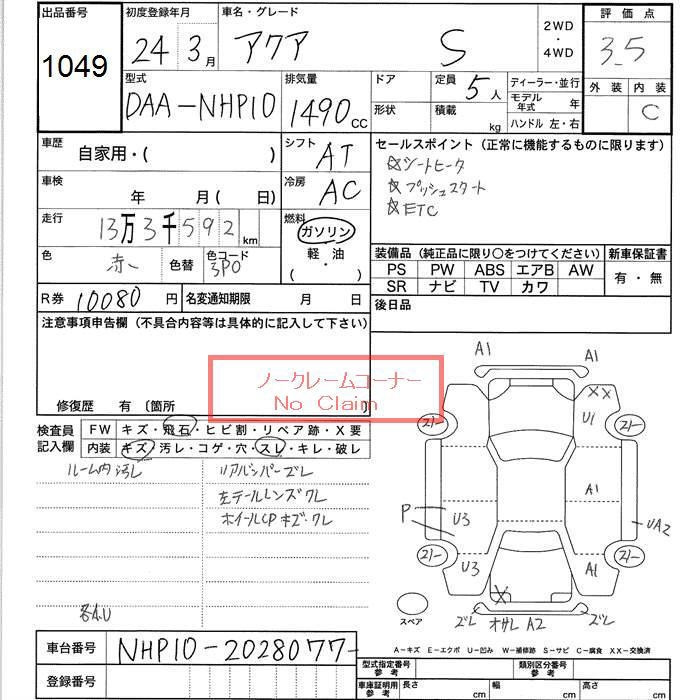 出品番号 初度登録年月 車名・グレード 2WD ・ 4WD 評価点
1049 24年3月 アクア S 3.5
型式 排気量 ドア 定員 5人 ディーラー・並行 外装 内装
DAA-NHP10 1490cc 形状 積載 kg モデル年式 年 C
ハンドル 左・右
車歴 自家用・( ) シフト AT セールスポイント(正常に機能するものに限ります)
☆シートヒータ
車検 年 月( 日) 冷房 AC ☆プッシュスタート
☆ETC
走行 13万3千592km 燃料 ガソリン・軽油・( )
色 赤 色替 色コード 3P0 装備品(純正品に限り○をつけてください) 新車保証書
PS PW ABS エアB AW 有・無
SR ナビ TV カワ
R券 10080円 名変通知期限 月 日 後日品
注意事項申告欄(不具合内容等は具体的に記入して下さい)
ノークレームコーナー
No Claim
修復歴 有 〔箇所
検査員記入欄 FW キズ・飛石・ヒビ割・リペア跡・X要
内装 キズ・汚レ・コゲ・穴・スレ・キレ・破レ
ルーム内汚レ リアバンパーズレ
左テールレンズワレ
ホイールCPキズ・ワレ
各A.U
A1 A1
XX
21- U1 21-
A1
P U3 UA2
21- U3 A1 21-
X
スペア ズレ オサレ A2 ズレ
A-キズ E-エクボ U-凹み W-補修跡 S-サビ C-腐食 XX-交換済
車台番号 NHP10-2028077-
登録番号
型式指定番号 参考 類別区分番号 参考
車庫証明用 参考 長さ cm 幅 cm 高さ cm